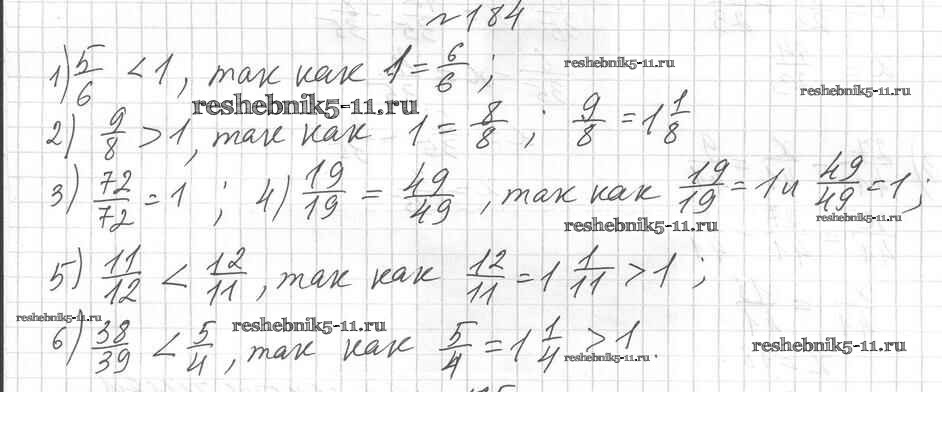 №184
1) 5/6 < 1, так как 1 = 6/6;
reshebnik5-11.ru
reshebnik5-11.ru
reshebnik5-11.ru
2) 9/8 > 1, так как 1 = 8/8; 9/8 = 1 1/8
3) 72/72 = 1; 4) 19/19 = 49/49, так как 19/19 = 1 и 49/49 = 1;
reshebnik5-11.ru
reshebnik5-11.ru
5) 11/12 < 12/11, так как 12/11 = 1 1/11 > 1;
reshebnik5-11.ru
reshebnik5-11.ru
6) 38/39 < 5/4, так как 5/4 = 1 1/4 > 1.
reshebnik5-11.ru
reshebnik5-11.ru